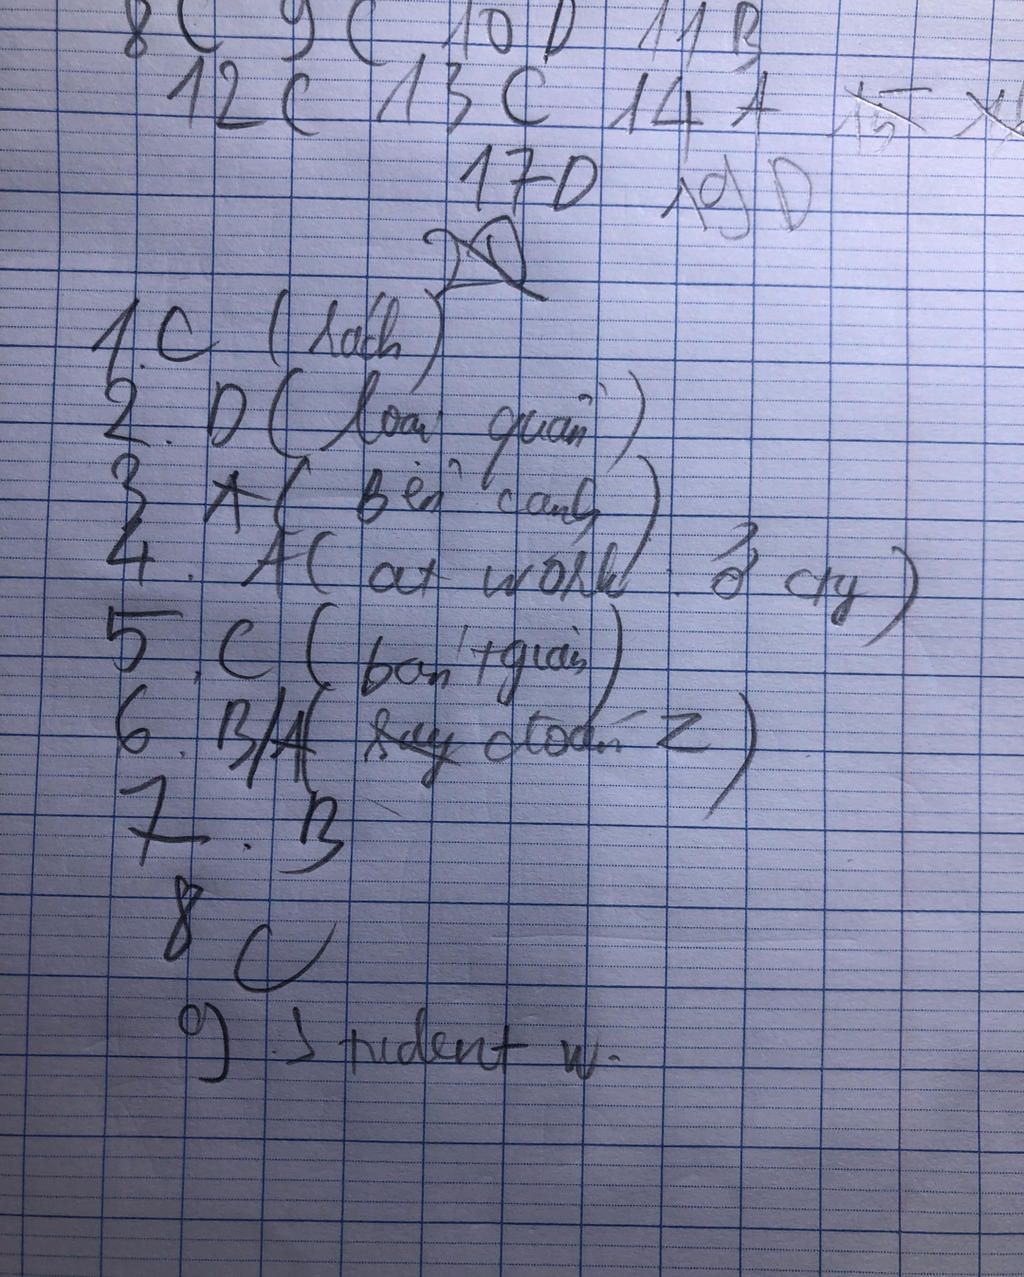 8 C 9 C 10 D 11 B
12 C 13 C 14 A 15
17 D 19 D
1. C (sách)
2. D ( loại quần )
3 A ( Bên cạnh )
4. A ( at work. ở cty )
5. C ( bán + quần )
6. B/A( đoán 2 )
7. B
8 C
9. Student w.